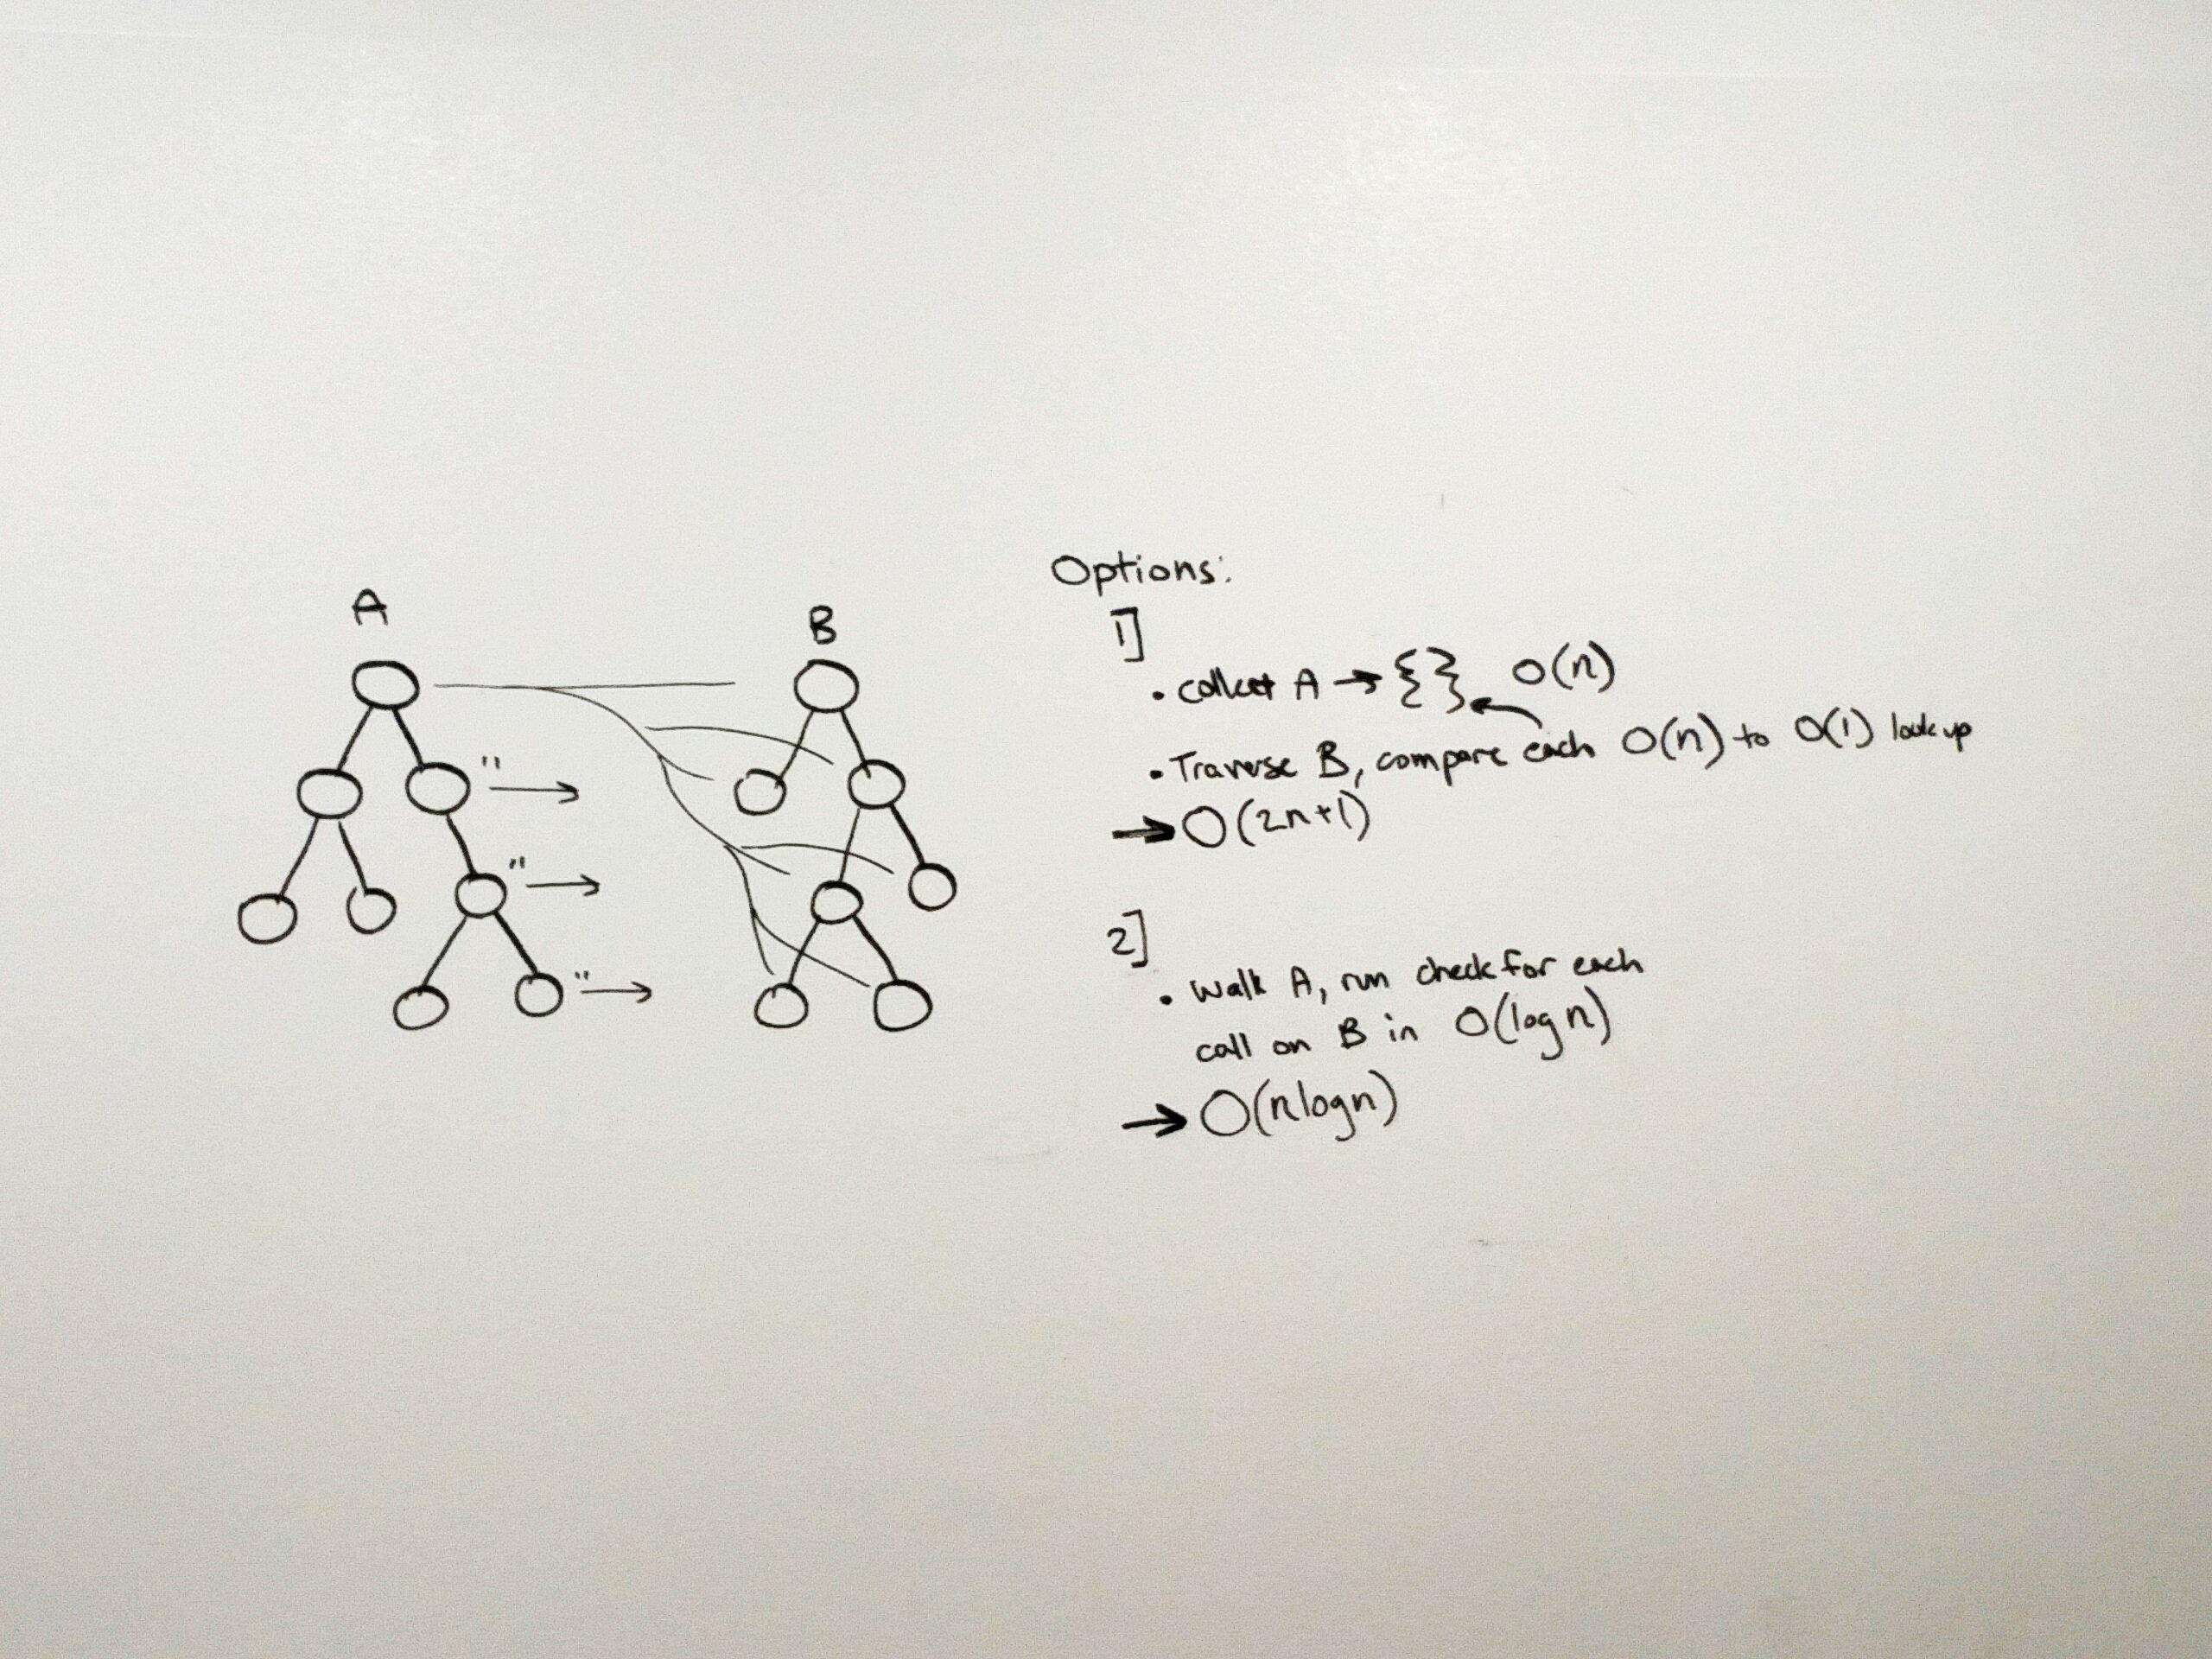 A
B
"
"
"
Options:
1]
• collect A → { } O(n)
• Traverse B, compare each O(n) to O(1) lookup
→ O(2n+1)
2]
• walk A, run check for each
call on B in O(log n)
→ O(nlogn)